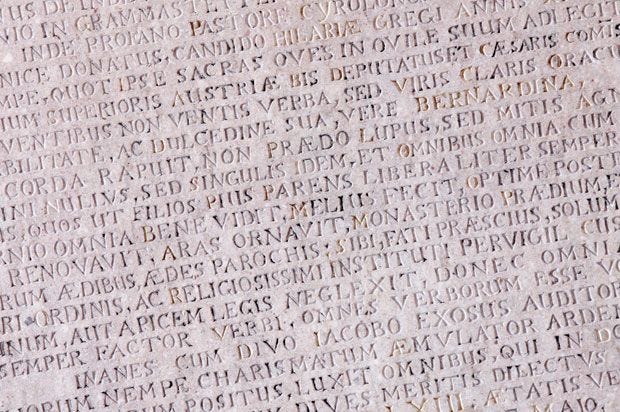 INDE PROFANO PASTORE
NICE DONATUS, CANDIDO HILARIÆ GREGI ANNIS AD LEGIT
QUOT IPSE SACRAS OVES IN OVILE SUUM
SUPERIORIS AUSTRIÆ BIS DEPUTATUS ET CÆSARIS COMIS
VENTIBUS NON VENTIS VERBA, SED VIRIS CLARIS ORACU
BILITATE, AC DULCEDINE SUA VERE BERNARDINA,
CORDA RAPUIT NON PRÆDO LUPUS, SED MITIS AGN
NULIUS, SED SINGULIS IDEM, ET OMNIBUS OMNIA CUM
QUOS UT FILIOS PIUS PARENS LIBERALITER SEMPER
OMNIA BENE VIDIT, MELIUS FECIT, OPTIME POSTE
RENOVAVIT, ARAS ORNAVIT, MONASTERIO PRÆDIUM, E
RUM ÆDIBUS, ÆDES PAROCHIS, SIBI, FATI PRÆSCIUS, SOLUM
ORDINIS, AC RELIGIOSISSIMI INSTITUTI PERVIGIL CUS
AUT APICEM LEGIS NEGLEXIT, DONEC OMNIA
SEMPER FACTOR VERBI, OMNES VERBORUM ESSE VO
INANES CUM DIVO IACOBO EXOSUS AUDITOR
NEMPE CHARISMATUM ÆMULATOR ARDE
POSITUS LUXIT OMNIBUS, QUI IN DO
DIVES MERITIS DILECTUS
ÆTATIS